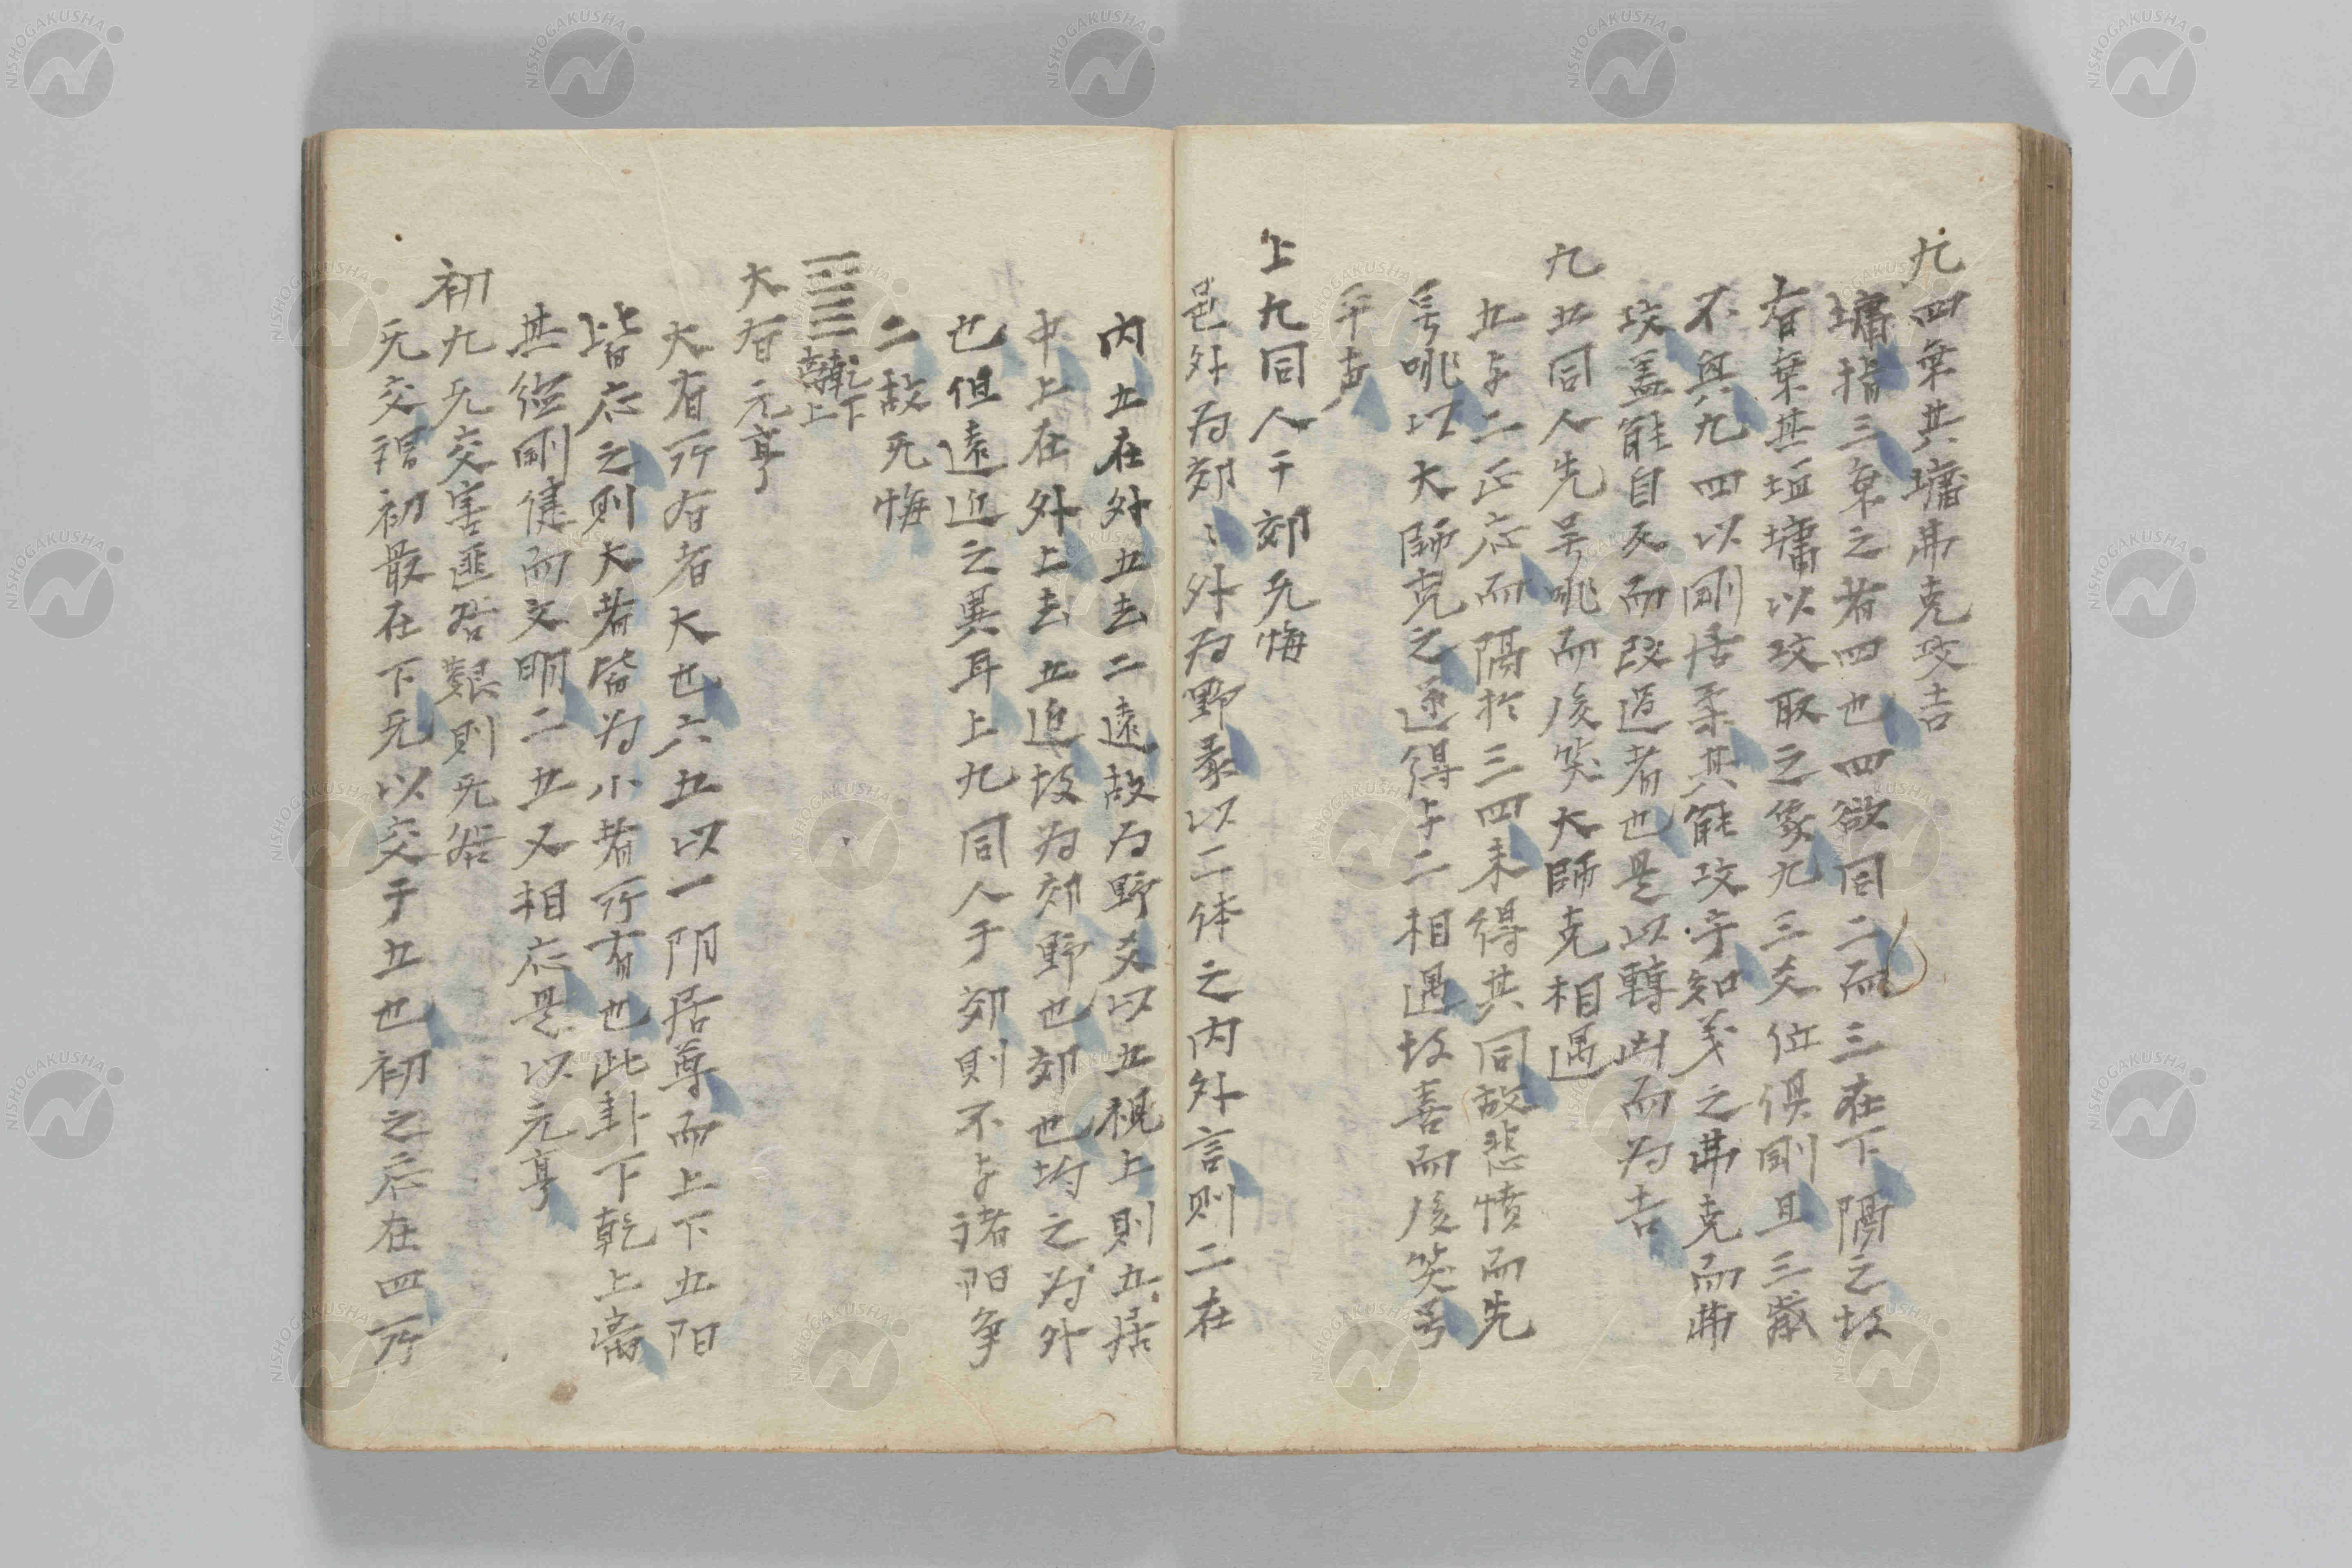 九四乗其墉弗克攻吉
墉指三乗之者四也四欲同二而三在下隔之故
有乗其垣墉以攻取之象九三爻位倶剛且三
不與九四以剛居柔其能攻乎知義之弗克而弗
攻盖能自反而改過者也是以轉凶而为吉
九五同人先号咷而後笑大師克相遇
五与二正応而隔於三四未得其同故悲憤而先
号咷以大師克之遂得与二相遇故喜而後笑号
平声
上九同人于郊无悔
邑外为郊〻外为野彖以二体之内外言则二在
内五在外五去二遠故为野爻以五視上則五居
中上在外上去五近故为郊野也郊也均之为外
也但遠近之異耳上九同人于郊則不与諸阳争
二故无悔
䷍乾下離上
大有元亨
大有所有者大也六五以一阴居尊而上下五阳
皆応之則大者皆为小者所有也此卦下乾上离
其德剛健而文明二五又相応是以元亨
初九无交害匪咎艱則无咎
无交謂初最在下无以交于五也初之応在四所
NISHOGAKUSHA